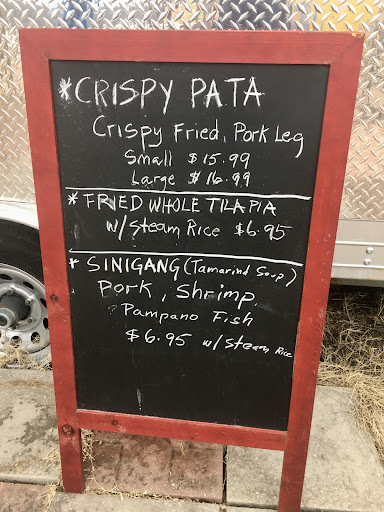 * CRISPY PATA
Crispy Fried, Pork Leg
Small $15.99
Large $16.99
* FRIED WHOLE TILAPIA
w/ Steam Rice $6.95
* SINIGANG (Tamarind Soup)
Pork, Shrimp,
Pampano Fish
$6.95 w/ Steam Rice